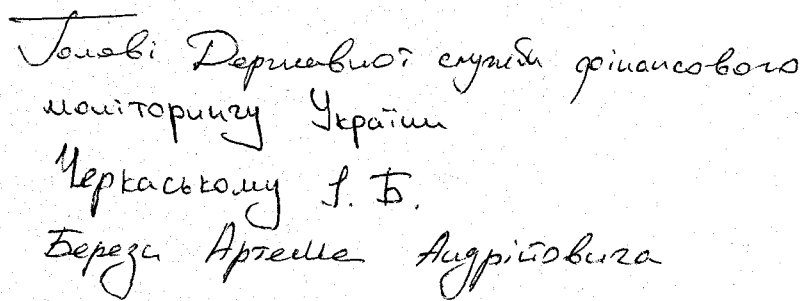 Голові Державної служби фінансового
моніторингу України
Черкаському І. Б.
Берези Артема Андрійовича